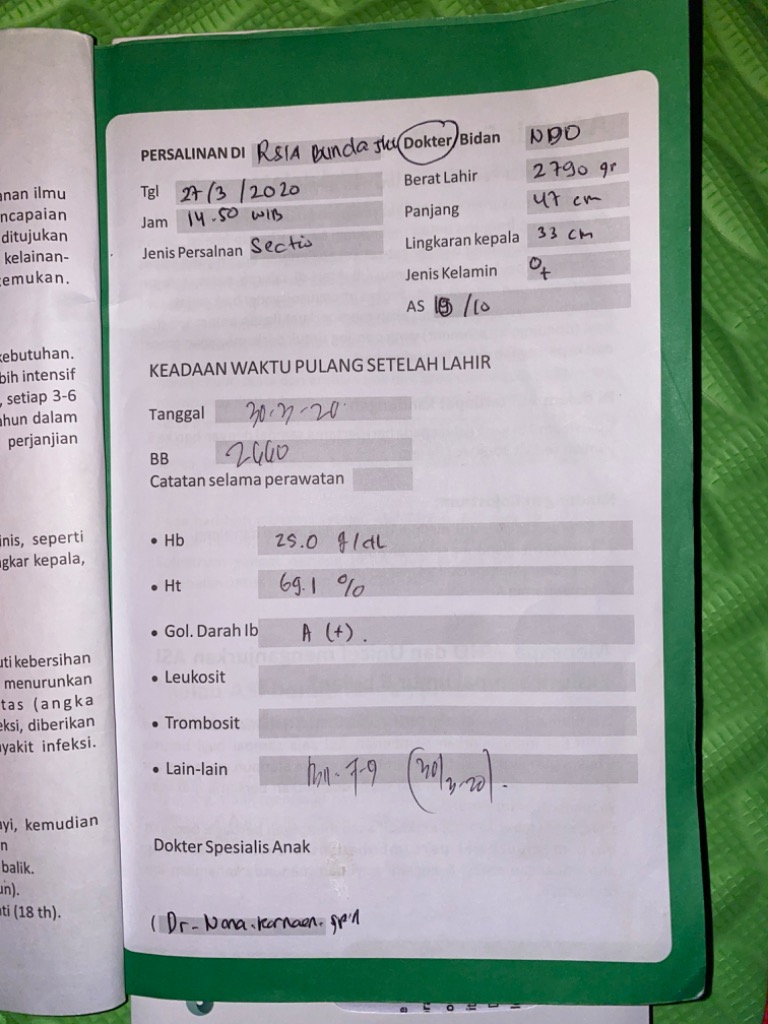 anan ilmu
ncapaian
ditujukan
kelainan-
temukan.
kebutuhan.
bih intensif
, setiap 3-6
ahun dalam
perjanjian
inis, seperti
gkar kepala,
uti kebersihan
menurunkan
tas (angka
eksi, diberikan
nyakit infeksi.
ayi, kemudian
n
balik.
un).
ati (18 th).
PERSALINAN DI RSIA Bunda Dokter/Bidan NDO
Tgl 27/3/2020
Jam 14.50 WIB
Jenis Persalnan Sectio
Berat Lahir 2790 gr
Panjang 47 cm
Lingkaran kepala 33 cm
Jenis Kelamin ♀
AS /10
KEADAAN WAKTU PULANG SETELAH LAHIR
Tanggal 30-3-20
BB 2660
Catatan selama perawatan
• Hb 25.0 g/dL
• Ht 69.1 %
• Gol. Darah Ib A (+).
• Leukosit
• Trombosit
• Lain-lain 7-9 (30/3-20).
Dokter Spesialis Anak
( Dr-Nona.